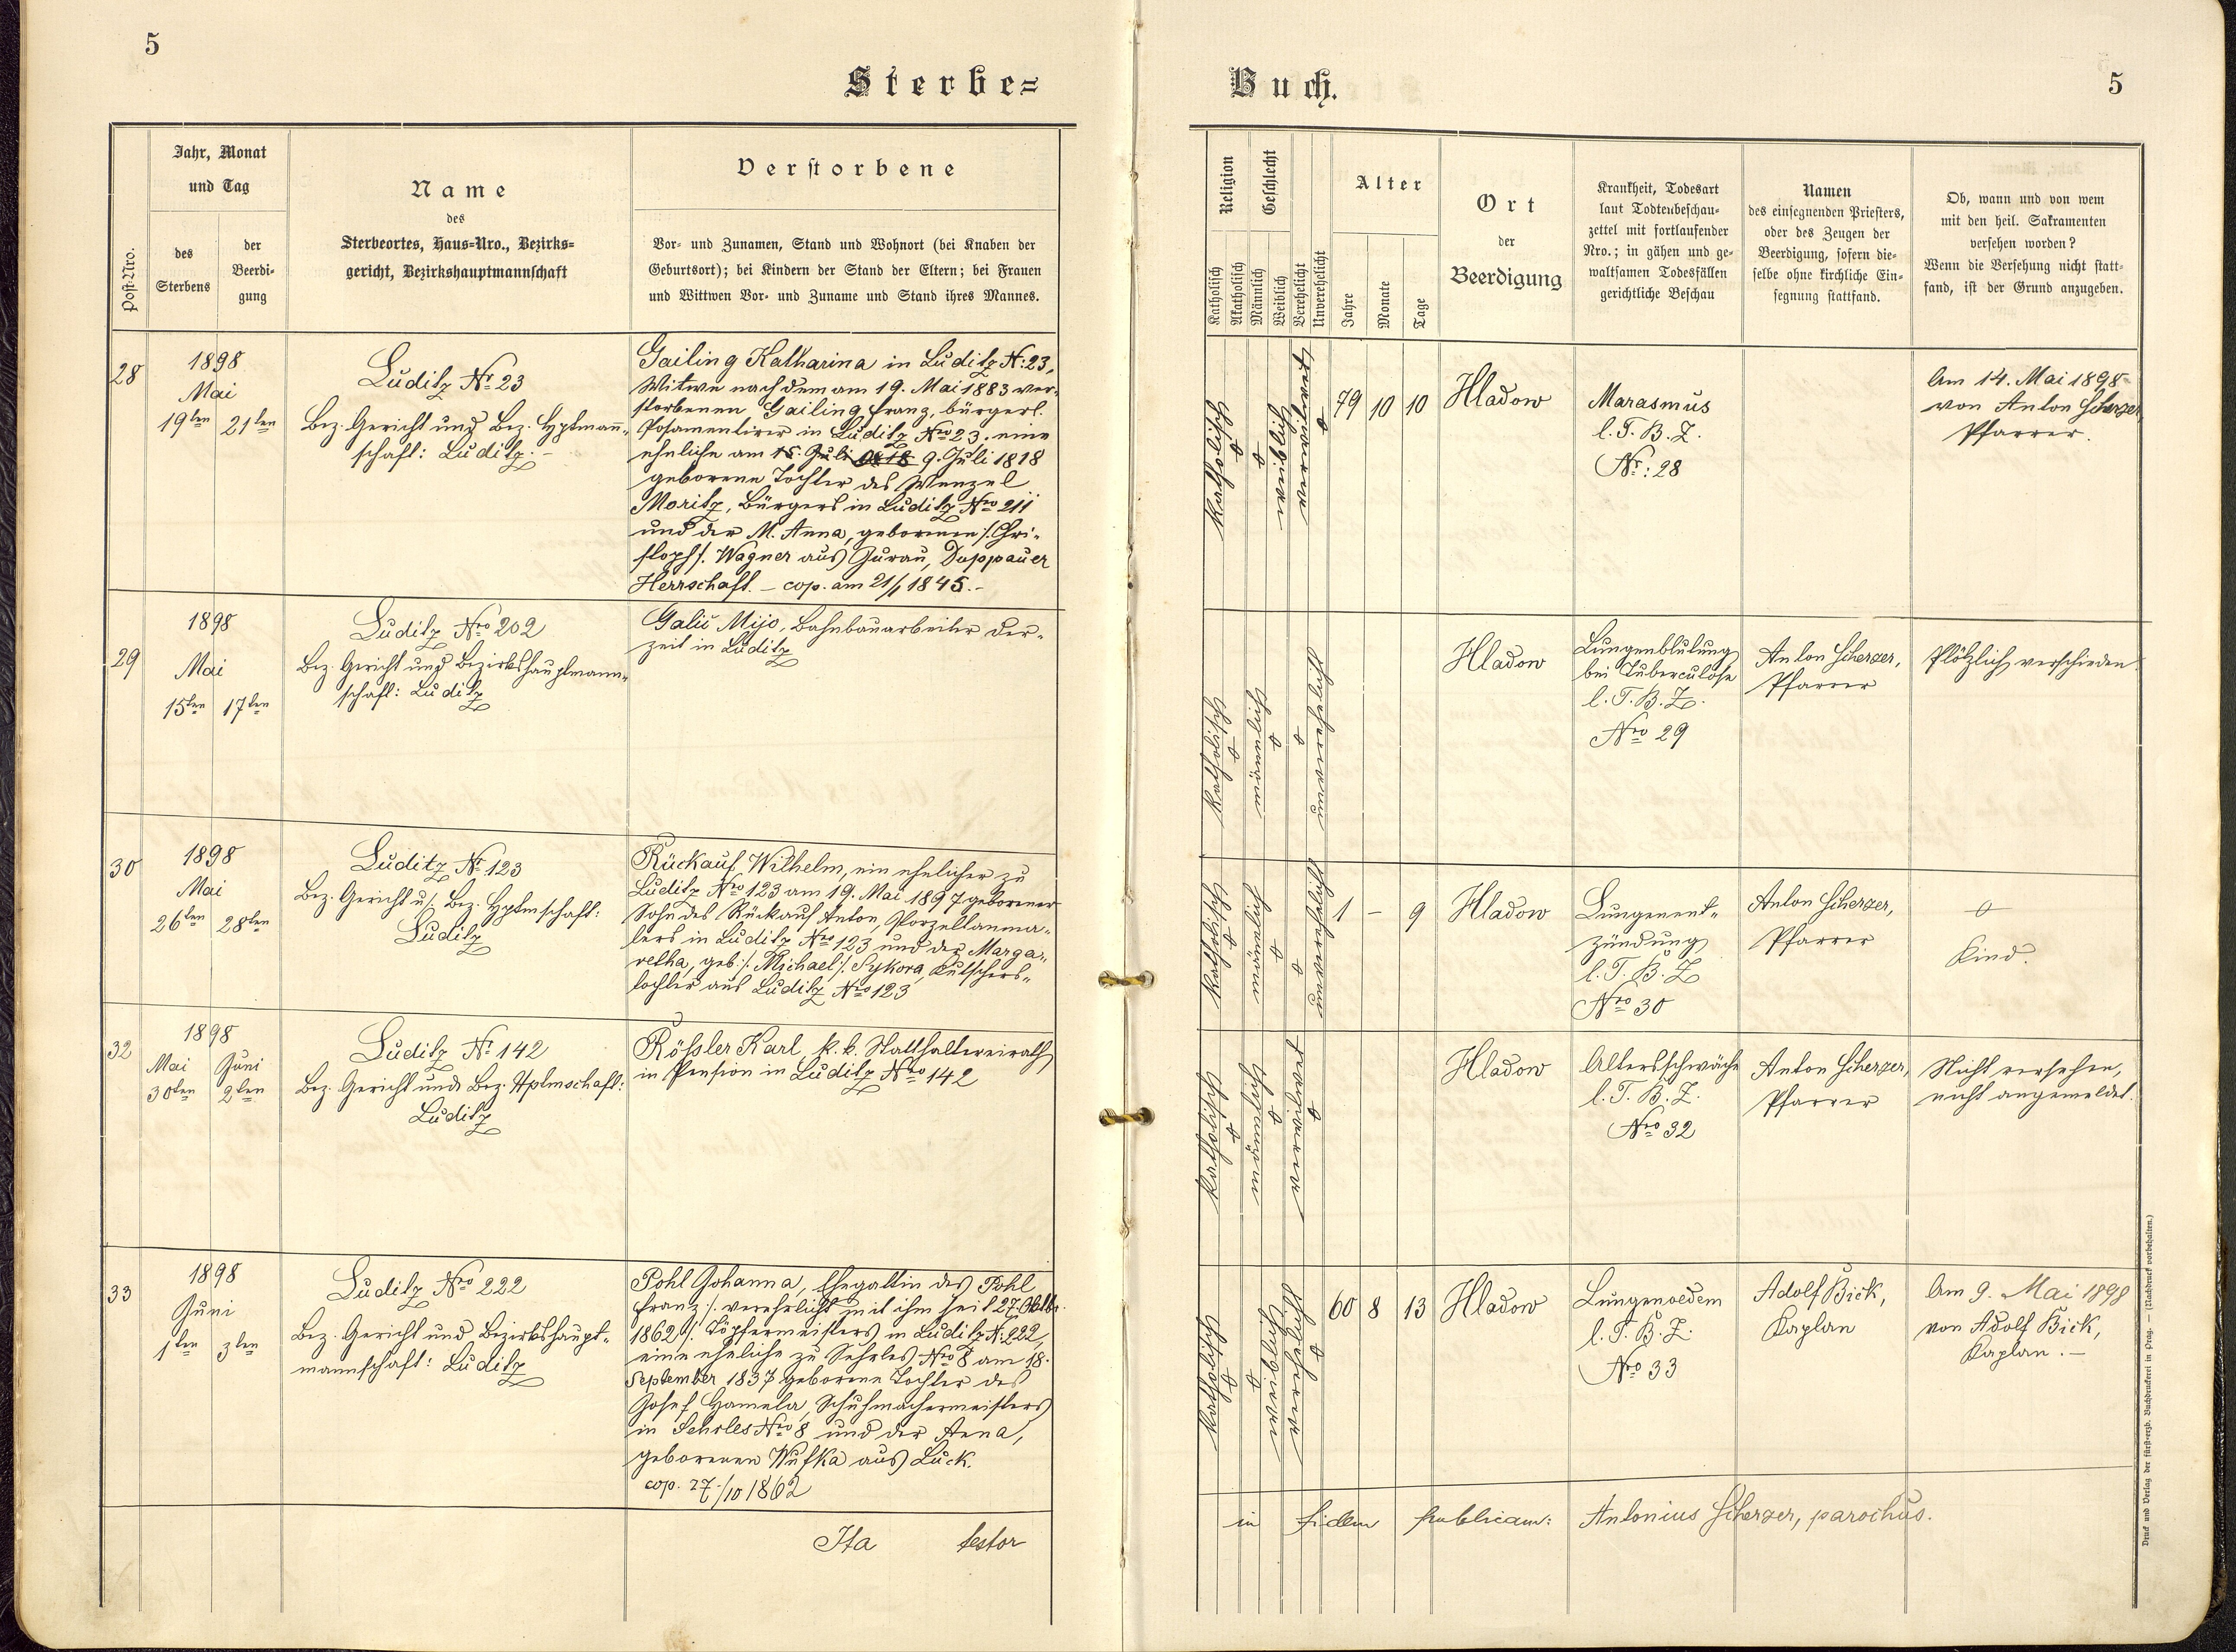 5
Sterbe=
Jahr, Monat
und Tag
des
Sterbens
der
Beerdi=
gung
Post-Nro.
Name
des
Sterbeortes, Haus=Nro., Bezirks=
gericht, Bezirkshauptmannschaft
Verstorbene
Vor- und Zunamen, Stand und Wohnort (bei Knaben der
Geburtsort); bei Kindern der Stand der Eltern; bei Frauen
und Wittwen Vor- und Zuname und Stand ihres Mannes.
28
1898
Mai
19ten 21ten
Luditz Nr. 23
Bez. Gericht und Bez. Hptmann=
schaft: Luditz. –
Gailing Katharina in Luditz N: 23,
Witwe nach dem am 19. Mai 1883 ver-
storbenen Gailing Franz, bürgerl.
Posamentirer in Luditz Nro 23. eine
eheliche am 15. Juli 1818 9. Juli 1818
geborene Tochter des Wenzel
Moritz, Bürgers in Luditz Nro 211
und der M. Anna, geborenen /: Chri-
stoph /. Wagner aus Jurau, Duppauer
Herrschaft. – cop. am 21/1 1845. –
29
1898
Mai
15ten 17ten
Luditz Nro 202
Bez. Gericht und Bezirkshauptmann=
schaft: Luditz
Galić Mijo, Bahnbauarbeiter der-
zeit in Luditz
30
1898
Mai
26ten 28ten
Luditz Nr. 123
Bez. Gericht u. Bez. Hptmschaft:
Luditz
Rückauf Wilhelm, ein ehelicher zu
Luditz Nro 123 am 19. Mai 1897 geborener
Sohn des Rückauf Anton, Porzellanma-
lers in Luditz Nro 123 und der Marga-
retha, geb. /. Michael /. Sykora, Kutschers-
tochter aus Luditz Nro 123
32
1898
Mai Juni
30ten 2ten
Luditz Nr. 142
Bez. Gericht und Bez. Hptmschaft:
Luditz
Rößler Karl, k. k. Statthaltereirath
in Pension in Luditz Nro 142
33
1898
Juni
1ten 3ten
Luditz Nro 222
Bez. Gericht und Bezirkshaupt=
mannschaft: Luditz
Pohl Johanna, Ehegattin des Pohl
Franz /. verehelicht mit ihm seit 27. Oktbr.
1862 /. Töpfermeisters in Luditz N: 222,
eine eheliche zu Sehrles Nro 8 am 18.
September 1837 geborene Tochter des
Josef Hamela, Schuhmachermeisters
in Sehrles Nro 8 und der Anna,
geborenen Wufka aus Luck.
cop. 27./10 1862
Ita testor
Buch.
5
Religion
Katholisch
Akatholisch
Geschlecht
Männlich
Weiblich
Verehelicht
Unverehelicht
Alter
Jahre
Monate
Tage
Ort
der
Beerdigung
Krankheit, Todesart
laut Todtenbeschau-
zettel mit fortlaufender
Nro.; in gähen und ge-
waltsamen Todesfällen
gerichtliche Beschau
Namen
des einsegnenden Priesters,
oder des Zeugen der
Beerdigung, sofern die-
selbe ohne kirchliche Ein-
segnung stattfand.
Ob, wann und von wem
mit den heil. Sakramenten
versehen worden?
Wenn die Versehung nicht statt-
fand, ist der Grund anzugeben.
katholisch
weiblich
verwitwet
79 10 10
Hladow
Marasmus
l. T. B. Z.
Nr: 28
Am 14. Mai 1898
von Anton Scherzer
Pfarrer.
katholisch
männlich
unverehelicht
Hladow
Lungenblutung
bei Tuberculose
l. T. B. Z.
Nro 29
Anton Scherzer,
Pfarrer
Plötzlich verschieden.
katholisch
männlich
unverehelicht
1 – 9
Hladow
Lungenent=
zündung
l. T. B. Z
Nro 30
Anton Scherzer,
Pfarrer
Kind.
katholisch
männlich
verwitwet
Hladow
Altersschwäche
l. T. B. Z.
Nro 32
Anton Scherzer,
Pfarrer
Nicht versehen,
nicht angemeldet.
katholisch
weiblich
verehelicht
60 8 13
Hladow
Lungenoedem
l. T. B. Z.
Nro 33
Adolf Bick,
Kaplan
Am 9. Mai 1898
von Adolf Bick,
Kaplan. –
in fidem publicam: Antonius Scherzer, parochus.
Druck und Verlag der fürst-erzb. Buchdruckerei in Prag. — (Nachdruck vorbehalten.)